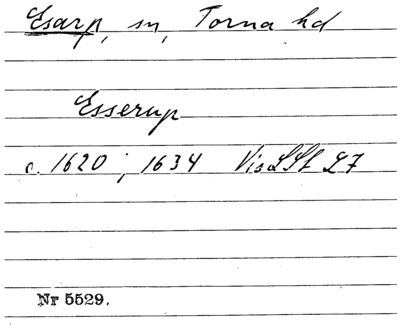 Esarp, sn, Torna hd
Esserup
c. 1620; 1634 Vis LSt 27
Nr 5529.